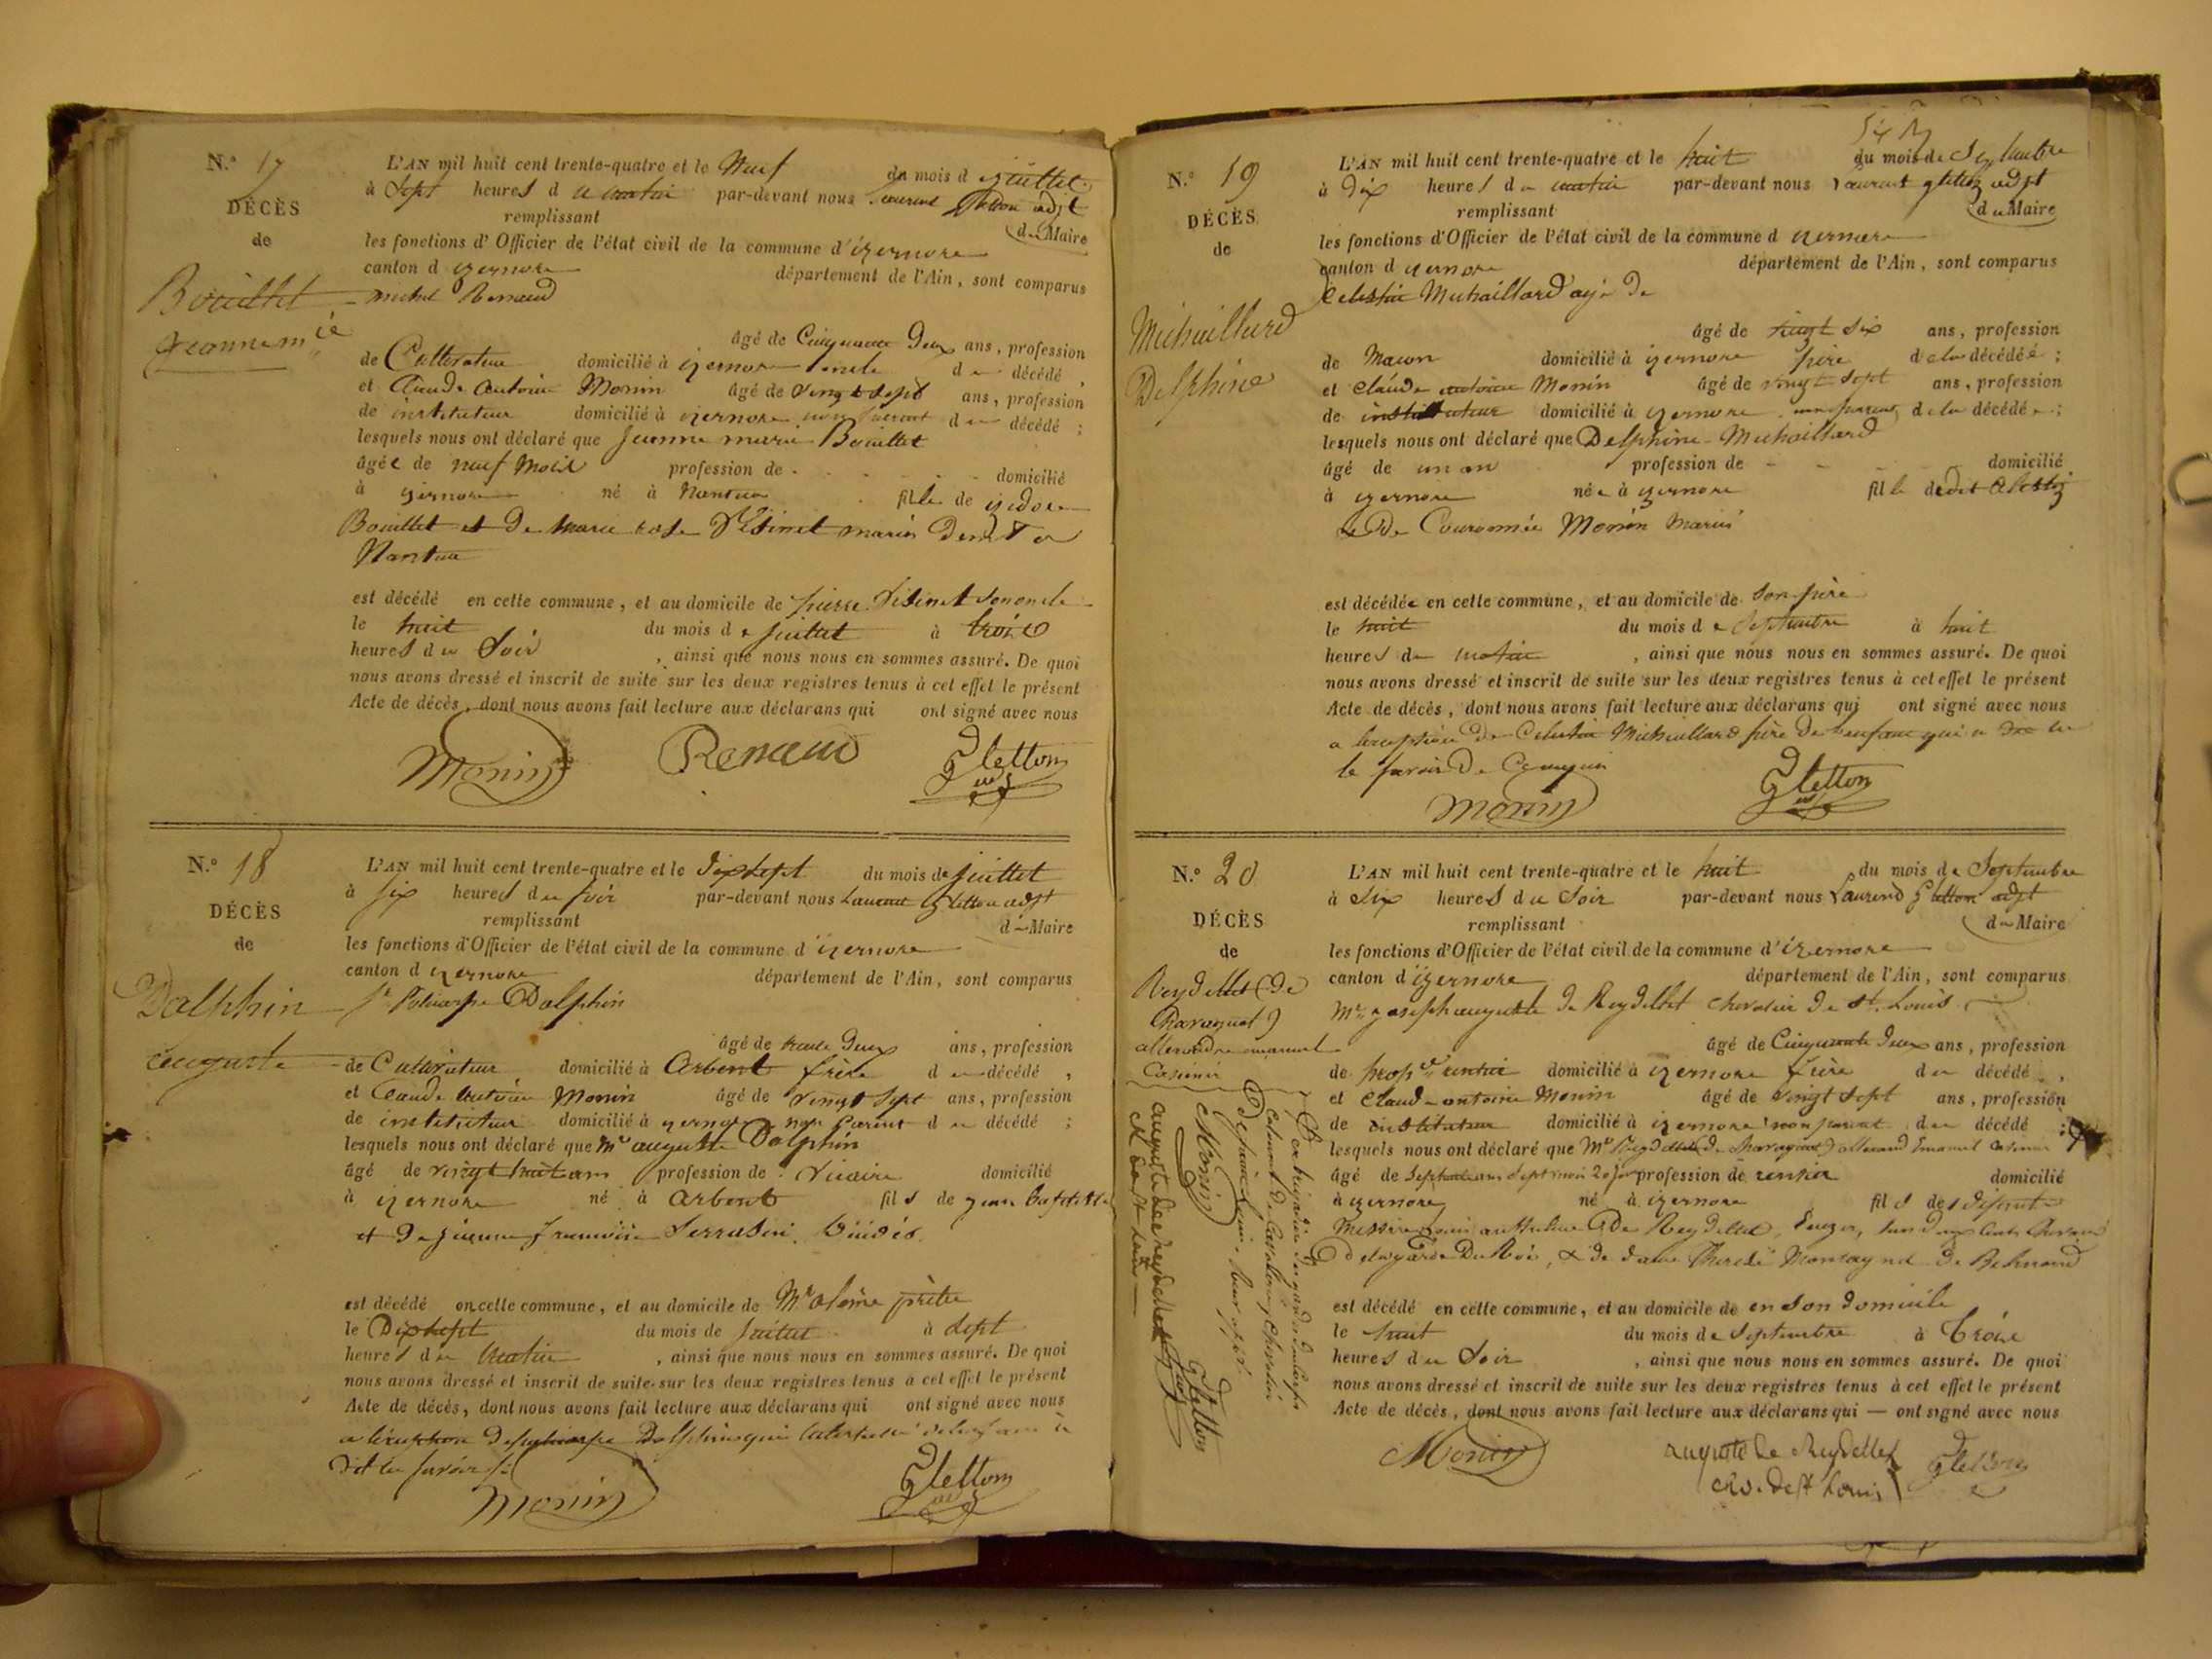 N.° 17
DÉCÈS
de
Bouillet
Jeanne m.ie
L'AN mil huit cent trente-quatre et le Neuf du mois d e juillet
à Sept heures d u matin par-devant nous Laurent Gletton adjt
remplissant d u Maire
les fonctions d' Officier de l'état civil de la commune d'izernore
canton d izernore département de l'Ain, sont comparus
michel Renaud
âgé de Cinquante Deux ans, profession
de Cultivateur domicilié à izernore oncle d u décédé,
et Claude Antoine Monin âgé de vingt sept ans, profession
de instituteur domicilié à izernore non parent d u décédé;
lesquels nous ont déclaré que Jeanne marie Bouillet
âgée de neuf Mois profession de - - - - domicilié
à izernore né à Nantua fille de izidore
Bouillet et De marie rose Visinet mariés Demt a
Nantua
est décédé en cette commune, et au domicile de pierre Visinet son oncle
le huit du mois d e juillet à trois
heures d u Soir, ainsi que nous nous en sommes assuré. De quoi
nous avons dressé et inscrit de suite sur les deux registres tenus à cet effet le présent
Acte de décès, dont nous avons fait lecture aux déclarans qui ont signé avec nous
Monin Renaud Gletton
N.° 18
DÉCÈS
de
Dalphin
auguste
L'AN mil huit cent trente-quatre et le Dixsept du mois de juillet
à six heures d u soir par-devant nous Laurent Gletton adjt
remplissant d u Maire
les fonctions d'Officier de l'état civil de la commune d'izernore
canton d izernore département de l'Ain, sont comparus
Dalphin
âgé de trente Deux ans, profession
de Cultivateur domicilié à Arbent frère d u décédé,
et Claude Antoine Monin âgé de vingt sept ans, profession
de instituteur domicilié à izernore non parent d u décédé;
lesquels nous ont déclaré que Mr auguste Dalphin
âgé de vingt huit ans profession de Vicaire domicilié
à izernore né à Arbent fils de jean baptiste
et De jeanne françoise
est décédé en cette commune, et au domicile de Mr prêtre
le Dixsept du mois de juillet à sept
heures d u Matin, ainsi que nous nous en sommes assuré. De quoi
nous avons dressé et inscrit de suite sur les deux registres tenus à cet effet le présent
Acte de décès, dont nous avons fait lecture aux déclarans qui ont signé avec nous
Dalphin qui
Monin Gletton
N.° 19
DÉCÈS
de
Michaillard
Delphine
L'AN mil huit cent trente-quatre et le huit du mois de Septembre
à Dix heures d u matin par-devant nous Laurent gletton adjt
remplissant d u Maire
les fonctions d'Officier de l'état civil de la commune d izernore
canton d izernore département de l'Ain, sont comparus
Celestin Michaillard agé De
âgé de vingt six ans, profession
de Macon domicilié à izernore père d e la décédée;
et Claude antoine Monin âgé de vingt sept ans, profession
de instituteur domicilié à izernore non parent d e la décédée;
lesquels nous ont déclaré que Delphine Michaillard
âgé de un an profession de - - - domicilié
à izernore née à izernore fille dudit Celestin
et De Couronnée Monin Mariés
est décédée en cette commune, et au domicile de son père
le huit du mois d e Septembre à huit
heures d u matin, ainsi que nous nous en sommes assuré. De quoi
nous avons dressé et inscrit de suite sur les deux registres tenus à cet effet le présent
Acte de décès, dont nous avons fait lecture aux déclarans qui ont signé avec nous
a lexception De Celestin Michaillard père De l'enfant qui a dit ne
le savoir De ce enquis
Monin Gletton
N.° 20
DÉCÈS
de
Reydellet (De
Chavagnat)
allexandre emanuel
Casimir
L'AN mil huit cent trente-quatre et le huit du mois de Septembre
à Six heures d u Soir par-devant nous Laurend Gletton adjt
remplissant d u Maire
les fonctions d'Officier de l'état civil de la commune d'izernore
canton d'izernore département de l'Ain, sont comparus
Mr joseph auguste de Reydellet chevalier De st Louis
âgé de Cinquante Deux ans, profession
de propre rentier domicilié à izernore frère d u décédé,
et Claude antoine Monin âgé de vingt sept ans, profession
de instituteur domicilié à izernore non parent d u décédé;
lesquels nous ont déclaré que Mr Reydellet de Chavagnat Emanuel Casimir
âgé de ans sept mois 20 jours profession de rentier domicilié
à izernore né à izernore fils de défunt
Messire De Reydellet
De la garde Du Roi, & de dame
est décédé en cette commune, et au domicile de en Son domicile
le huit du mois de Septembre à Trois
heures du Soir, ainsi que nous nous en sommes assuré. De quoi
nous avons dressé et inscrit de suite sur les deux registres tenus à cet effet le présent
Acte de décès, dont nous avons fait lecture aux déclarans qui — ont signé avec nous
Monin auguste de Reydellet Gletton
chv. de st Louis
Colonel de Cavalerie, Chevalier
De Saint Louis
Monin Gletton
auguste de reydellet